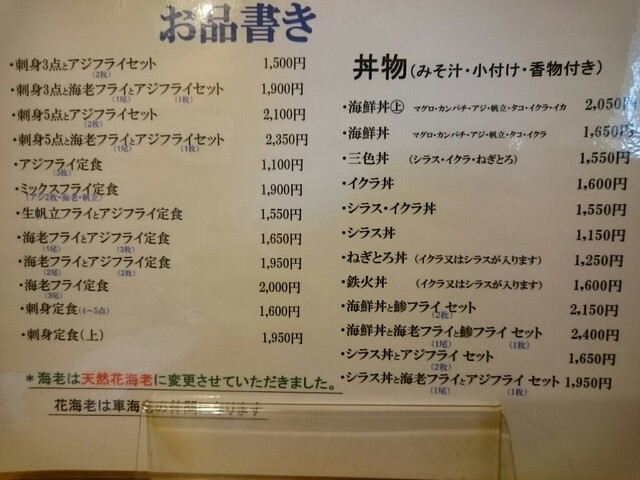 お品書き
・刺身3点とアジフライセット 1,500円
(2枚)
・刺身3点と海老フライとアジフライセット 1,900円
(1尾) (1枚)
・刺身5点とアジフライセット 2,100円
(2枚)
・刺身5点と海老フライとアジフライセット 2,350円
(1尾) (1枚)
・アジフライ定食 1,100円
(3枚)
・ミックスフライ定食 1,900円
(アジ2枚・海老・帆立)
・生帆立フライとアジフライ定食 1,550円
・海老フライとアジフライ定食 1,650円
(1尾) (3枚)
・海老フライとアジフライ定食 1,950円
(2尾) (2枚)
・海老フライ定食 2,000円
(3尾)
・刺身定食(4~5点) 1,600円
・刺身定食(上) 1,950円
*海老は天然花海老に変更させていただきました。
花海老は車海老の仲間になります
丼物(みそ汁・小付け・香物付き)
・海鮮丼㊤ マグロ・カンパチ・アジ・帆立・タコ・イクラ・イカ 2,050円
・海鮮丼 マグロ・カンパチ・アジ・帆立・タコ・イクラ 1,650円
・三色丼 (シラス・イクラ・ねぎとろ) 1,550円
・イクラ丼 1,600円
・シラス・イクラ丼 1,550円
・シラス丼 1,150円
・ねぎとろ丼 (イクラ又はシラスが入ります) 1,250円
・鉄火丼 (イクラ又はシラスが入ります) 1,600円
・海鮮丼と鯵フライ セット 2,150円
(2枚)
・海鮮丼と海老フライと鯵フライ セット 2,400円
(1尾) (1枚)
・シラス丼とアジフライ セット 1,650円
(2枚)
・シラス丼と海老フライとアジフライ セット 1,950円
(1尾) (1枚)